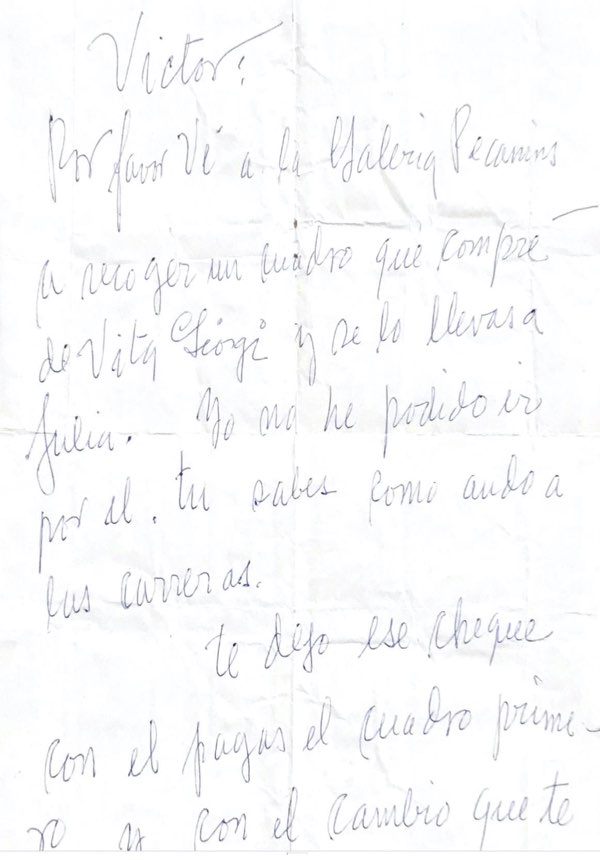 Victor:
Por favor Vé a la Galeria Pecanins
a recoger un cuadro que compré
de Vita Giorgi y se lo llevas a
Julia. Yo no he podido ir
por el. tu sabes como ando a
las carreras.
te dejo ese cheque
con el pagas el cuadro prime-
ro y con el cambio que te